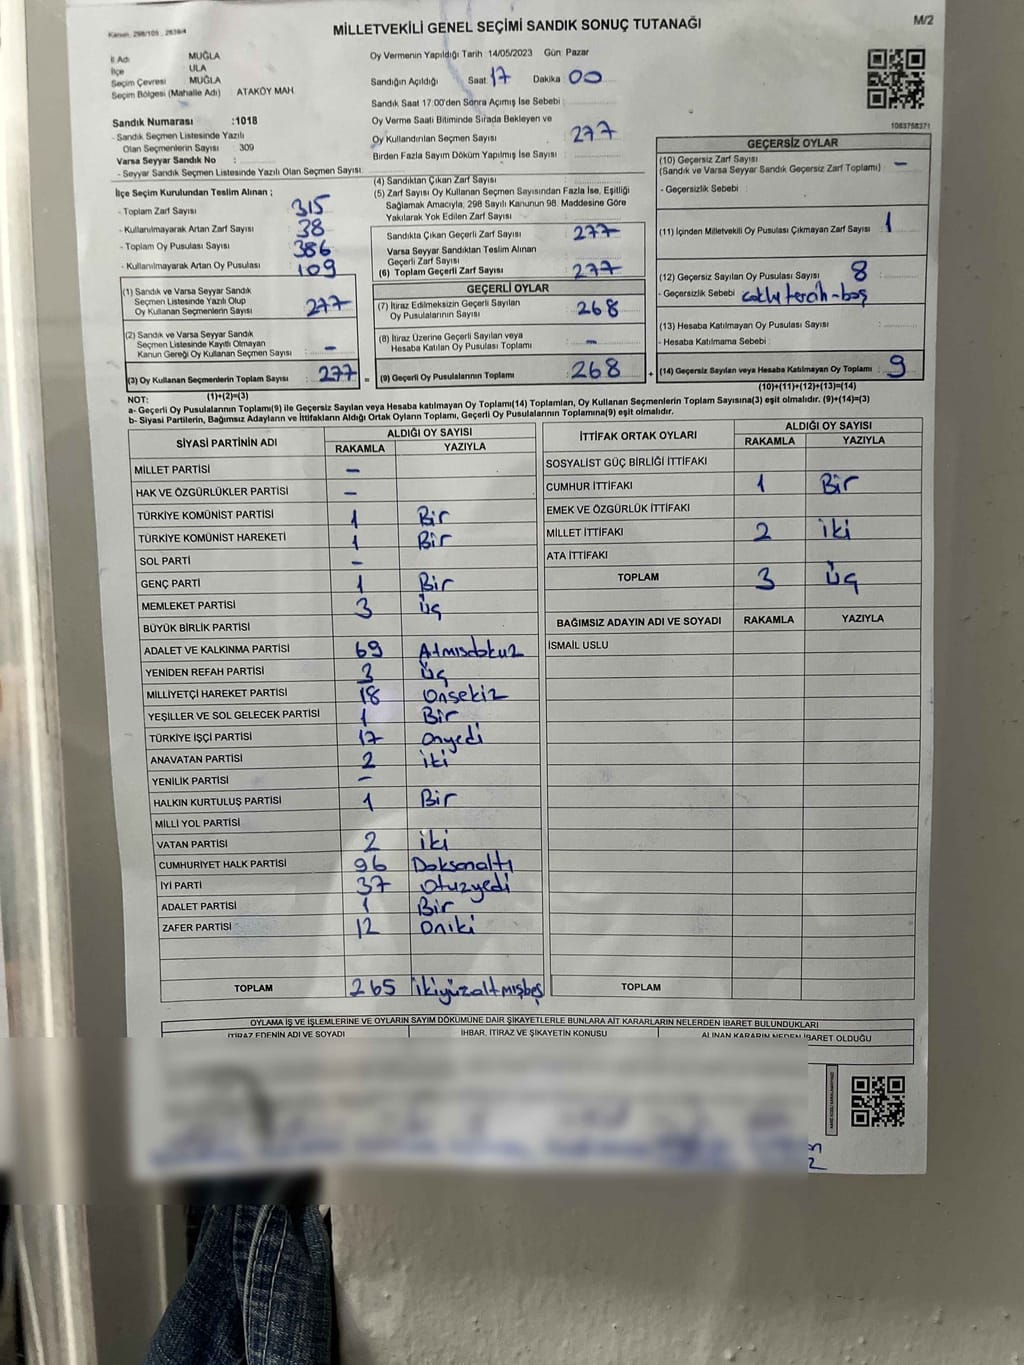 Kanun, 298/105 , 2839/4
MİLLETVEKİLİ GENEL SEÇİMİ SANDIK SONUÇ TUTANAĞI
M/2
İl Adı MUĞLA
İlçe ULA
Seçim Çevresi MUĞLA
Seçim Bölgesi (Mahalle Adı) ATAKÖY MAH.
Sandık Numarası :1018
- Sandık Seçmen Listesinde Yazılı
Olan Seçmenlerin Sayısı 309
Varsa Seyyar Sandık No :
- Seyyar Sandık Seçmen Listesinde Yazılı Olan Seçmen Sayısı:
Oy Vermenin Yapıldığı Tarih :14/05/2023 Gün: Pazar
Sandığın Açıldığı Saat: 17 Dakika: 00
Sandık Saat 17:00'den Sonra Açımış İse Sebebi :
Oy Verme Saati Bitiminde Sırada Bekleyen ve
Oy Kullandırılan Seçmen Sayısı : 277
Birden Fazla Sayım Döküm Yapılmış İse Sayısı :
1083758371
İlçe Seçim Kurulundan Teslim Alınan ;
- Toplam Zarf Sayısı 315
- Kullanılmayarak Artan Zarf Sayısı : 38
- Toplam Oy Pusulası Sayısı 386
- Kullanılmayarak Artan Oy Pusulası : 109
(1) Sandık ve Varsa Seyyar Sandık
Seçmen Listesinde Yazılı Olup
Oy Kullanan Seçmenlerin Sayısı 277
(2) Sandık ve Varsa Seyyar Sandık
Seçmen Listesinde Kayıtlı Olmayan
Kanun Gereği Oy Kullanan Seçmen Sayısı : –
(3) Oy Kullanan Seçmenlerin Toplam Sayısı : 277 =
(1)+(2)=(3)
(4) Sandıktan Çıkan Zarf Sayısı :
(5) Zarf Sayısı Oy Kullanan Seçmen Sayısından Fazla İse, Eşitliği
Sağlamak Amacıyla, 298 Sayılı Kanunun 98. Maddesine Göre
Yakılarak Yok Edilen Zarf Sayısı :
Sandıkta Çıkan Geçerli Zarf Sayısı : 277
Varsa Seyyar Sandıktan Teslim Alınan
Geçerli Zarf Sayısı :
(6) Toplam Geçerli Zarf Sayısı : 277
GEÇERLİ OYLAR
(7) İtiraz Edilmeksizin Geçerli Sayılan
Oy Pusulalarının Sayısı : 268
(8) İtiraz Üzerine Geçerli Sayılan veya
Hesaba Katılan Oy Pusulası Toplamı : –
(9) Geçerli Oy Pusulalarının Toplamı : 268 +
GEÇERSİZ OYLAR
(10) Geçersiz Zarf Sayısı
(Sandık ve Varsa Seyyar Sandık Geçersiz Zarf Toplamı) : –
- Geçersizlik Sebebi :
(11) İçinden Milletvekili Oy Pusulası Çıkmayan Zarf Sayısı : 1
(12) Geçersiz Sayılan Oy Pusulası Sayısı : 8
- Geçersizlik Sebebi
(13) Hesaba Katılmayan Oy Pusulası Sayısı :
- Hesaba Katılmama Sebebi :
(14) Geçersiz Sayılan veya Hesaba Katılmayan Oy Toplamı : 9
(10)+(11)+(12)+(13)=(14)
NOT:
a- Geçerli Oy Pusulalarının Toplamı(9) ile Geçersiz Sayılan veya Hesaba katılmayan Oy Toplamı(14) Toplamları, Oy Kullanan Seçmenlerin Toplam Sayısına(3) eşit olmalıdır. (9)+(14)=(3)
b- Siyasi Partilerin, Bağımsız Adayların ve İttifakların Aldığı Ortak Oyların Toplamı, Geçerli Oy Pusulalarının Toplamına(9) eşit olmalıdır.
SİYASİ PARTİNİN ADI
ALDIĞI OY SAYISI
RAKAMLA YAZIYLA
MİLLET PARTİSİ –
HAK VE ÖZGÜRLÜKLER PARTİSİ –
TÜRKİYE KOMÜNİST PARTİSİ 1 Bir
TÜRKİYE KOMÜNİST HAREKETİ 1 Bir
SOL PARTİ –
GENÇ PARTİ 1 Bir
MEMLEKET PARTİSİ 3 Üç
BÜYÜK BİRLİK PARTİSİ
ADALET VE KALKINMA PARTİSİ 69 Atmışdokuz
YENİDEN REFAH PARTİSİ 3 Üç
MİLLİYETÇİ HAREKET PARTİSİ 18 Onsekiz
YEŞİLLER VE SOL GELECEK PARTİSİ 1 Bir
TÜRKİYE İŞÇİ PARTİSİ 17 Onyedi
ANAVATAN PARTİSİ 2 iki
YENİLİK PARTİSİ –
HALKIN KURTULUŞ PARTİSİ 1 Bir
MİLLİ YOL PARTİSİ
VATAN PARTİSİ 2 iki
CUMHURİYET HALK PARTİSİ 96 Doksanaltı
İYİ PARTİ 37 Otuzyedi
ADALET PARTİSİ 1 Bir
ZAFER PARTİSİ 12 Oniki
TOPLAM 265 ikiyüzaltmışbeş
İTTİFAK ORTAK OYLARI
ALDIĞI OY SAYISI
RAKAMLA YAZIYLA
SOSYALİST GÜÇ BİRLİĞİ İTTİFAKI
CUMHUR İTTİFAKI 1 Bir
EMEK VE ÖZGÜRLÜK İTTİFAKI
MİLLET İTTİFAKI 2 iki
ATA İTTİFAKI
TOPLAM 3 Üç
BAĞIMSIZ ADAYIN ADI VE SOYADI RAKAMLA YAZIYLA
İSMAİL USLU
TOPLAM
OYLAMA İŞ VE İŞLEMLERİNE VE OYLARIN SAYIM DÖKÜMÜNE DAİR ŞİKAYETLERLE BUNLARA AİT KARARLARIN NELERDEN İBARET BULUNDUKLARI
İTİRAZ EDENİN ADI VE SOYADI İHBAR, İTİRAZ VE ŞİKAYETİN KONUSU ALINAN KARARIN NEDEN İBARET OLDUĞU